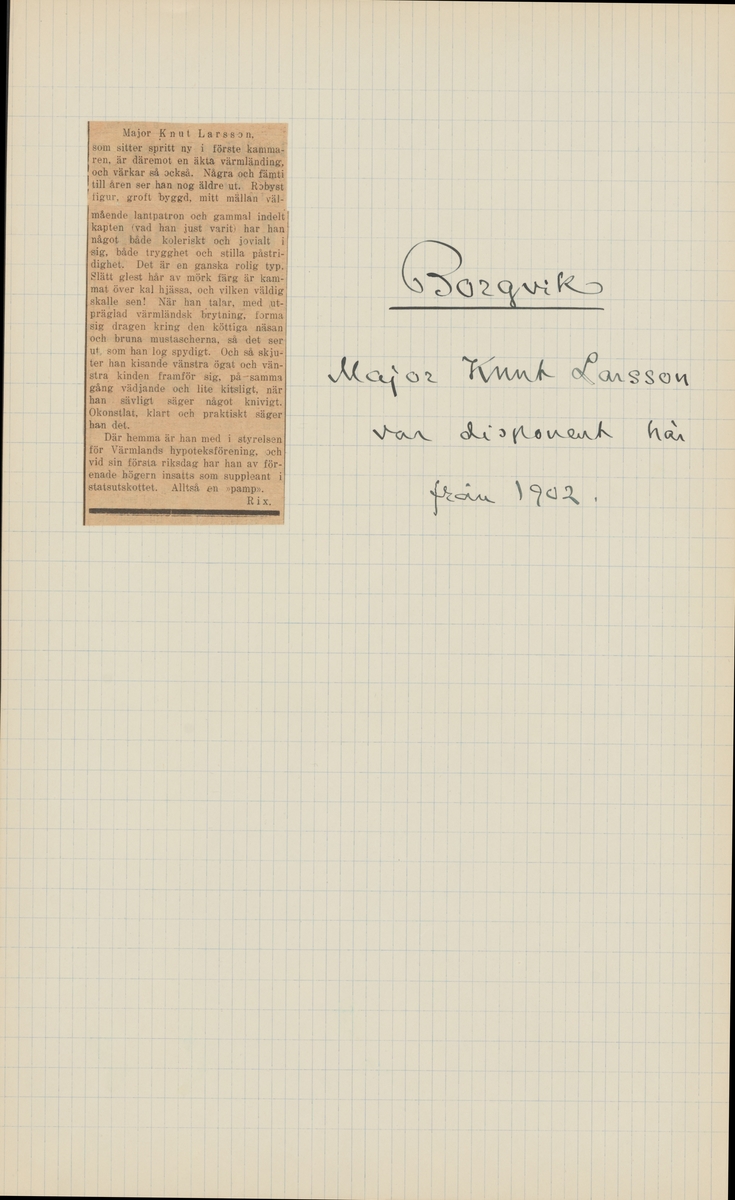 Major Knut Larsson,
som sitter spritt ny i förste kamma-
ren, är däremot en äkta värmländing,
och värkar så också. Några och fämti
till åren ser han nog äldre ut. Robyst
figur, groft byggd, mitt mällan väl-
mående lantpatron och gammal indelt
kapten (vad han just varit) har han
något både koleriskt och jovialt i
sig, både trygghet och stilla påstri-
dighet. Det är en ganska rolig typ.
Slätt glest hår av mörk färg är kam-
mat över kal hjässa, och vilken väldig
skalle sen! När han talar, med ut-
präglad värmländsk brytning, forma
sig dragen kring den köttiga näsan
och bruna mustascherna, så det ser
ut som han log spydigt. Och så skju-
ter han kisande vänstra ögat och vän-
stra kinden framför sig, på samma
gång vädjande och lite kitsligt, när
han sävligt säger något knivigt.
Okonstlat, klart och praktiskt säger
han det.
Där hemma är han med i styrelsen
för Värmlands hypoteksförening, och
vid sin första riksdag har han av för-
enade högern insatts som suppleant i
statsutskottet. Alltså en »pamp».
Rix.
Borgvik
Major Knut Larsson
var disponent här
från 1902.